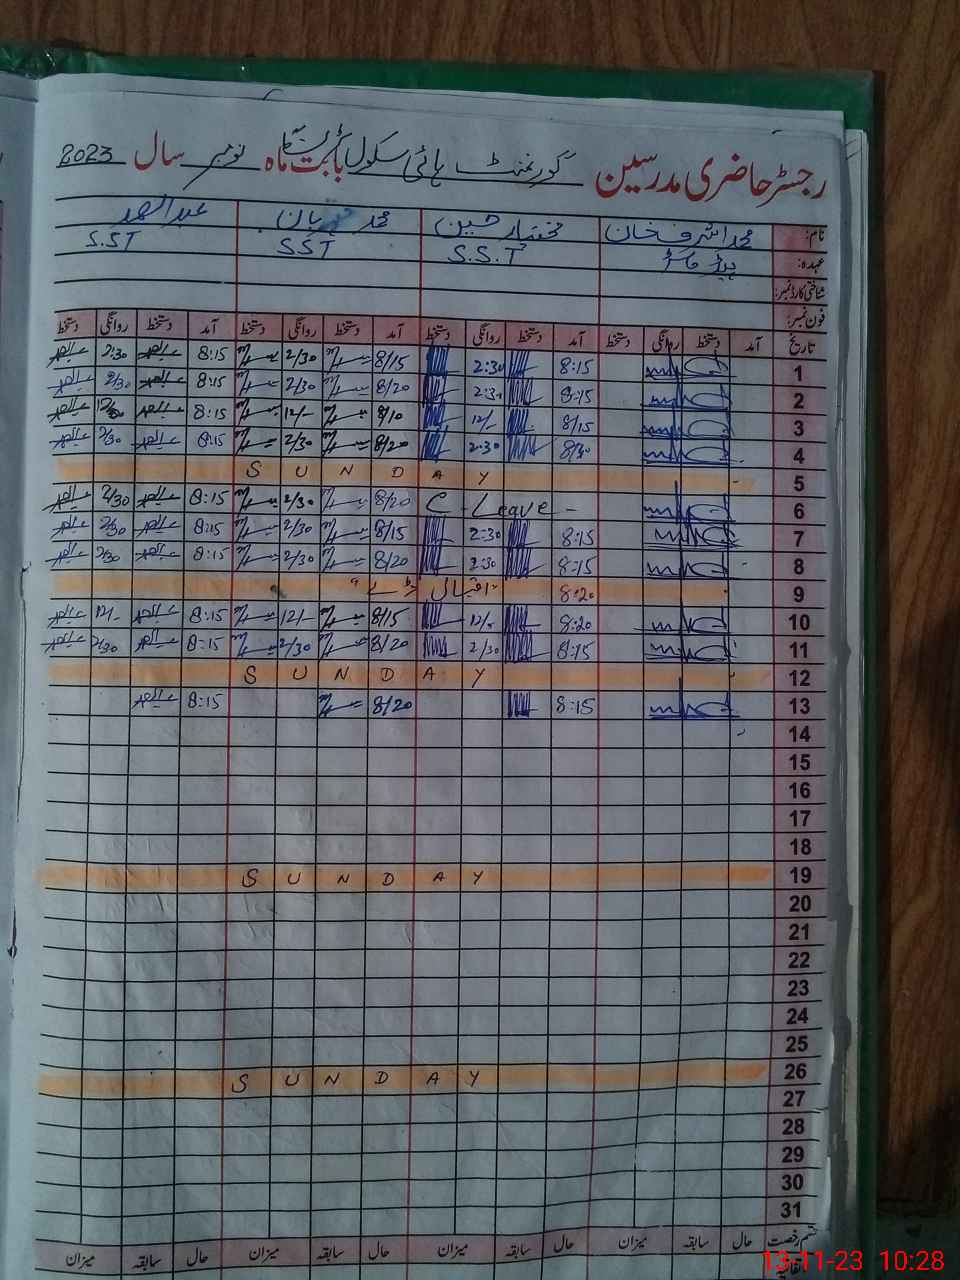 رجسٹر حاضری مدرسین گورنمنٹ ہائی سکول بابت ماہ نومبر سال 2023
نام: محمد اشرف خان مختیار حسین محمد عبدالصمد
عہدہ: ہیڈ ماسٹر S.S.T SST S.ST
شناختی کارڈ نمبر:
فون نمبر:
تاریخ آمد دستخط روانگی دستخط آمد دستخط روانگی دستخط آمد دستخط روانگی دستخط آمد دستخط روانگی دستخط
1 8:15 2:30 8/15 2/30 8:15 2:30
2 8:15 2:30 8/20 2/30 8:15 2/30
3 8/15 12/- 8/10 12/- 8:15
4 8/30 2:30 8/20 2/30 8:15 2/30
5 S U N D A Y
6 C-Leave - 8/20 2/30 8:15 2/30
7 8:15 2:30 8/15 2/30 8:15 2/30
8 8:15 2:30 8/20 2/30 8:15 2/30
9 8:20 اقبال ڈے
10 8:20 12/- 8/15 12/- 8:15 12/-
11 8:15 2/30 8/20 2/30 8:15 2/30
12 S U N D A Y
13 8:15 8/20 8:15
14
15
16
17
18
19 S U N D A Y
20
21
22
23
24
25
26 S U N D A Y
27
28
29
30
31
قسم رخصت حال سابقہ میزان حال سابقہ میزان حال سابقہ میزان حال سابقہ میزان
13-11-23 10:28